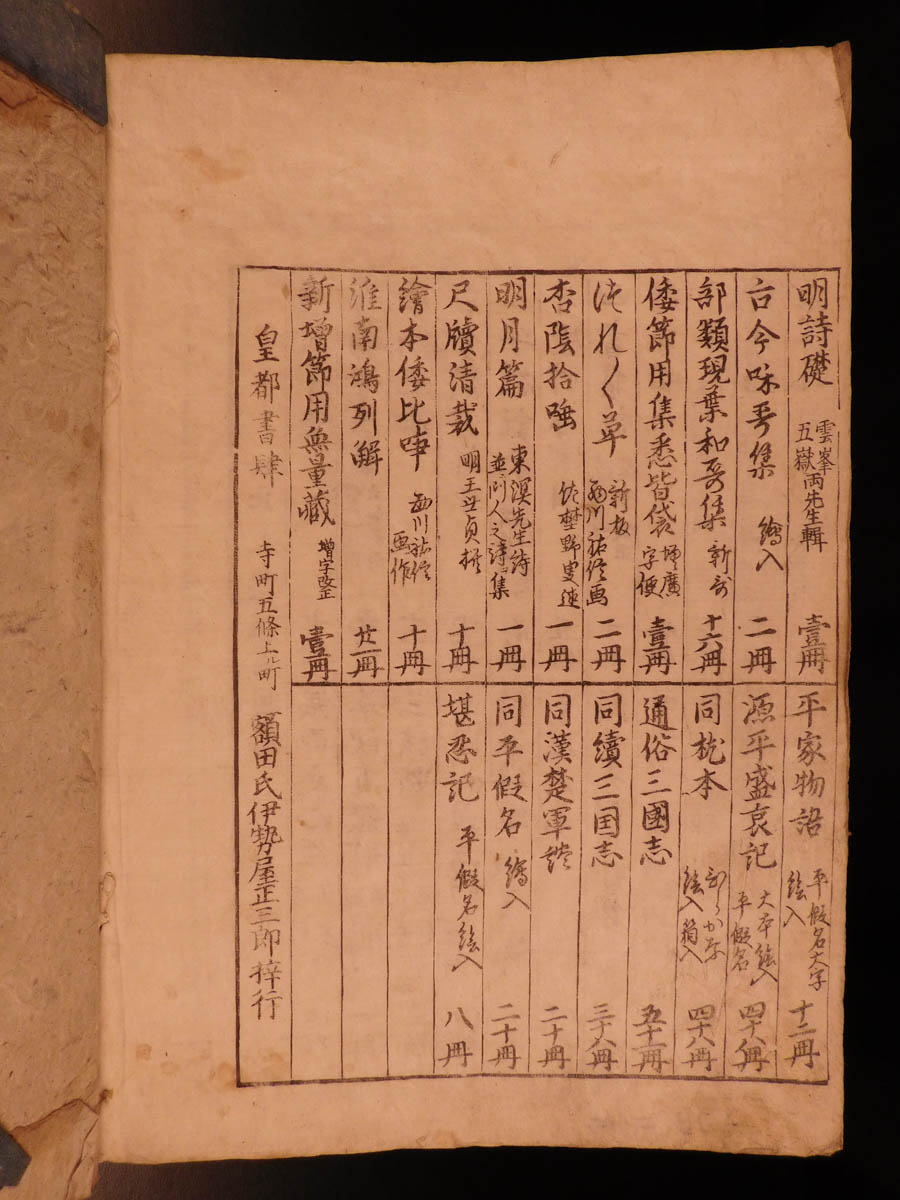 明詩礎 雲峯五嶽両先生輯 壹冊
古今和哥集 繪入 二冊
部類現葉和哥集 新刻 十六冊
倭節用集悉皆袋 増廣字便 壹冊
つれ〱草 新板西川祐信画 二冊
杏陰拾唾 佐埜野叟連 一冊
明月篇 東溟先生詩並門人之詩集 一冊
尺牘清裁 明王世貞撰 十冊
繪本倭比事 西川祐信画作 十冊
淮南鴻列解 廿一冊
新増節用無量藏 増字改正 壹冊
平家物語 平假名大字絵入 十二冊
源平盛衰記 大本絵入平假名 四十八冊
同枕本 ひらかな絵入箱入 四十八冊
通俗三國志 五十一冊
同續三国志 三十八冊
同漢楚軍談 二十冊
同平假名 繪入 二十冊
堪忍記 平假名絵入 八冊
皇都書肆 寺町五條上ル町 額田氏伊勢屋正三郎梓行